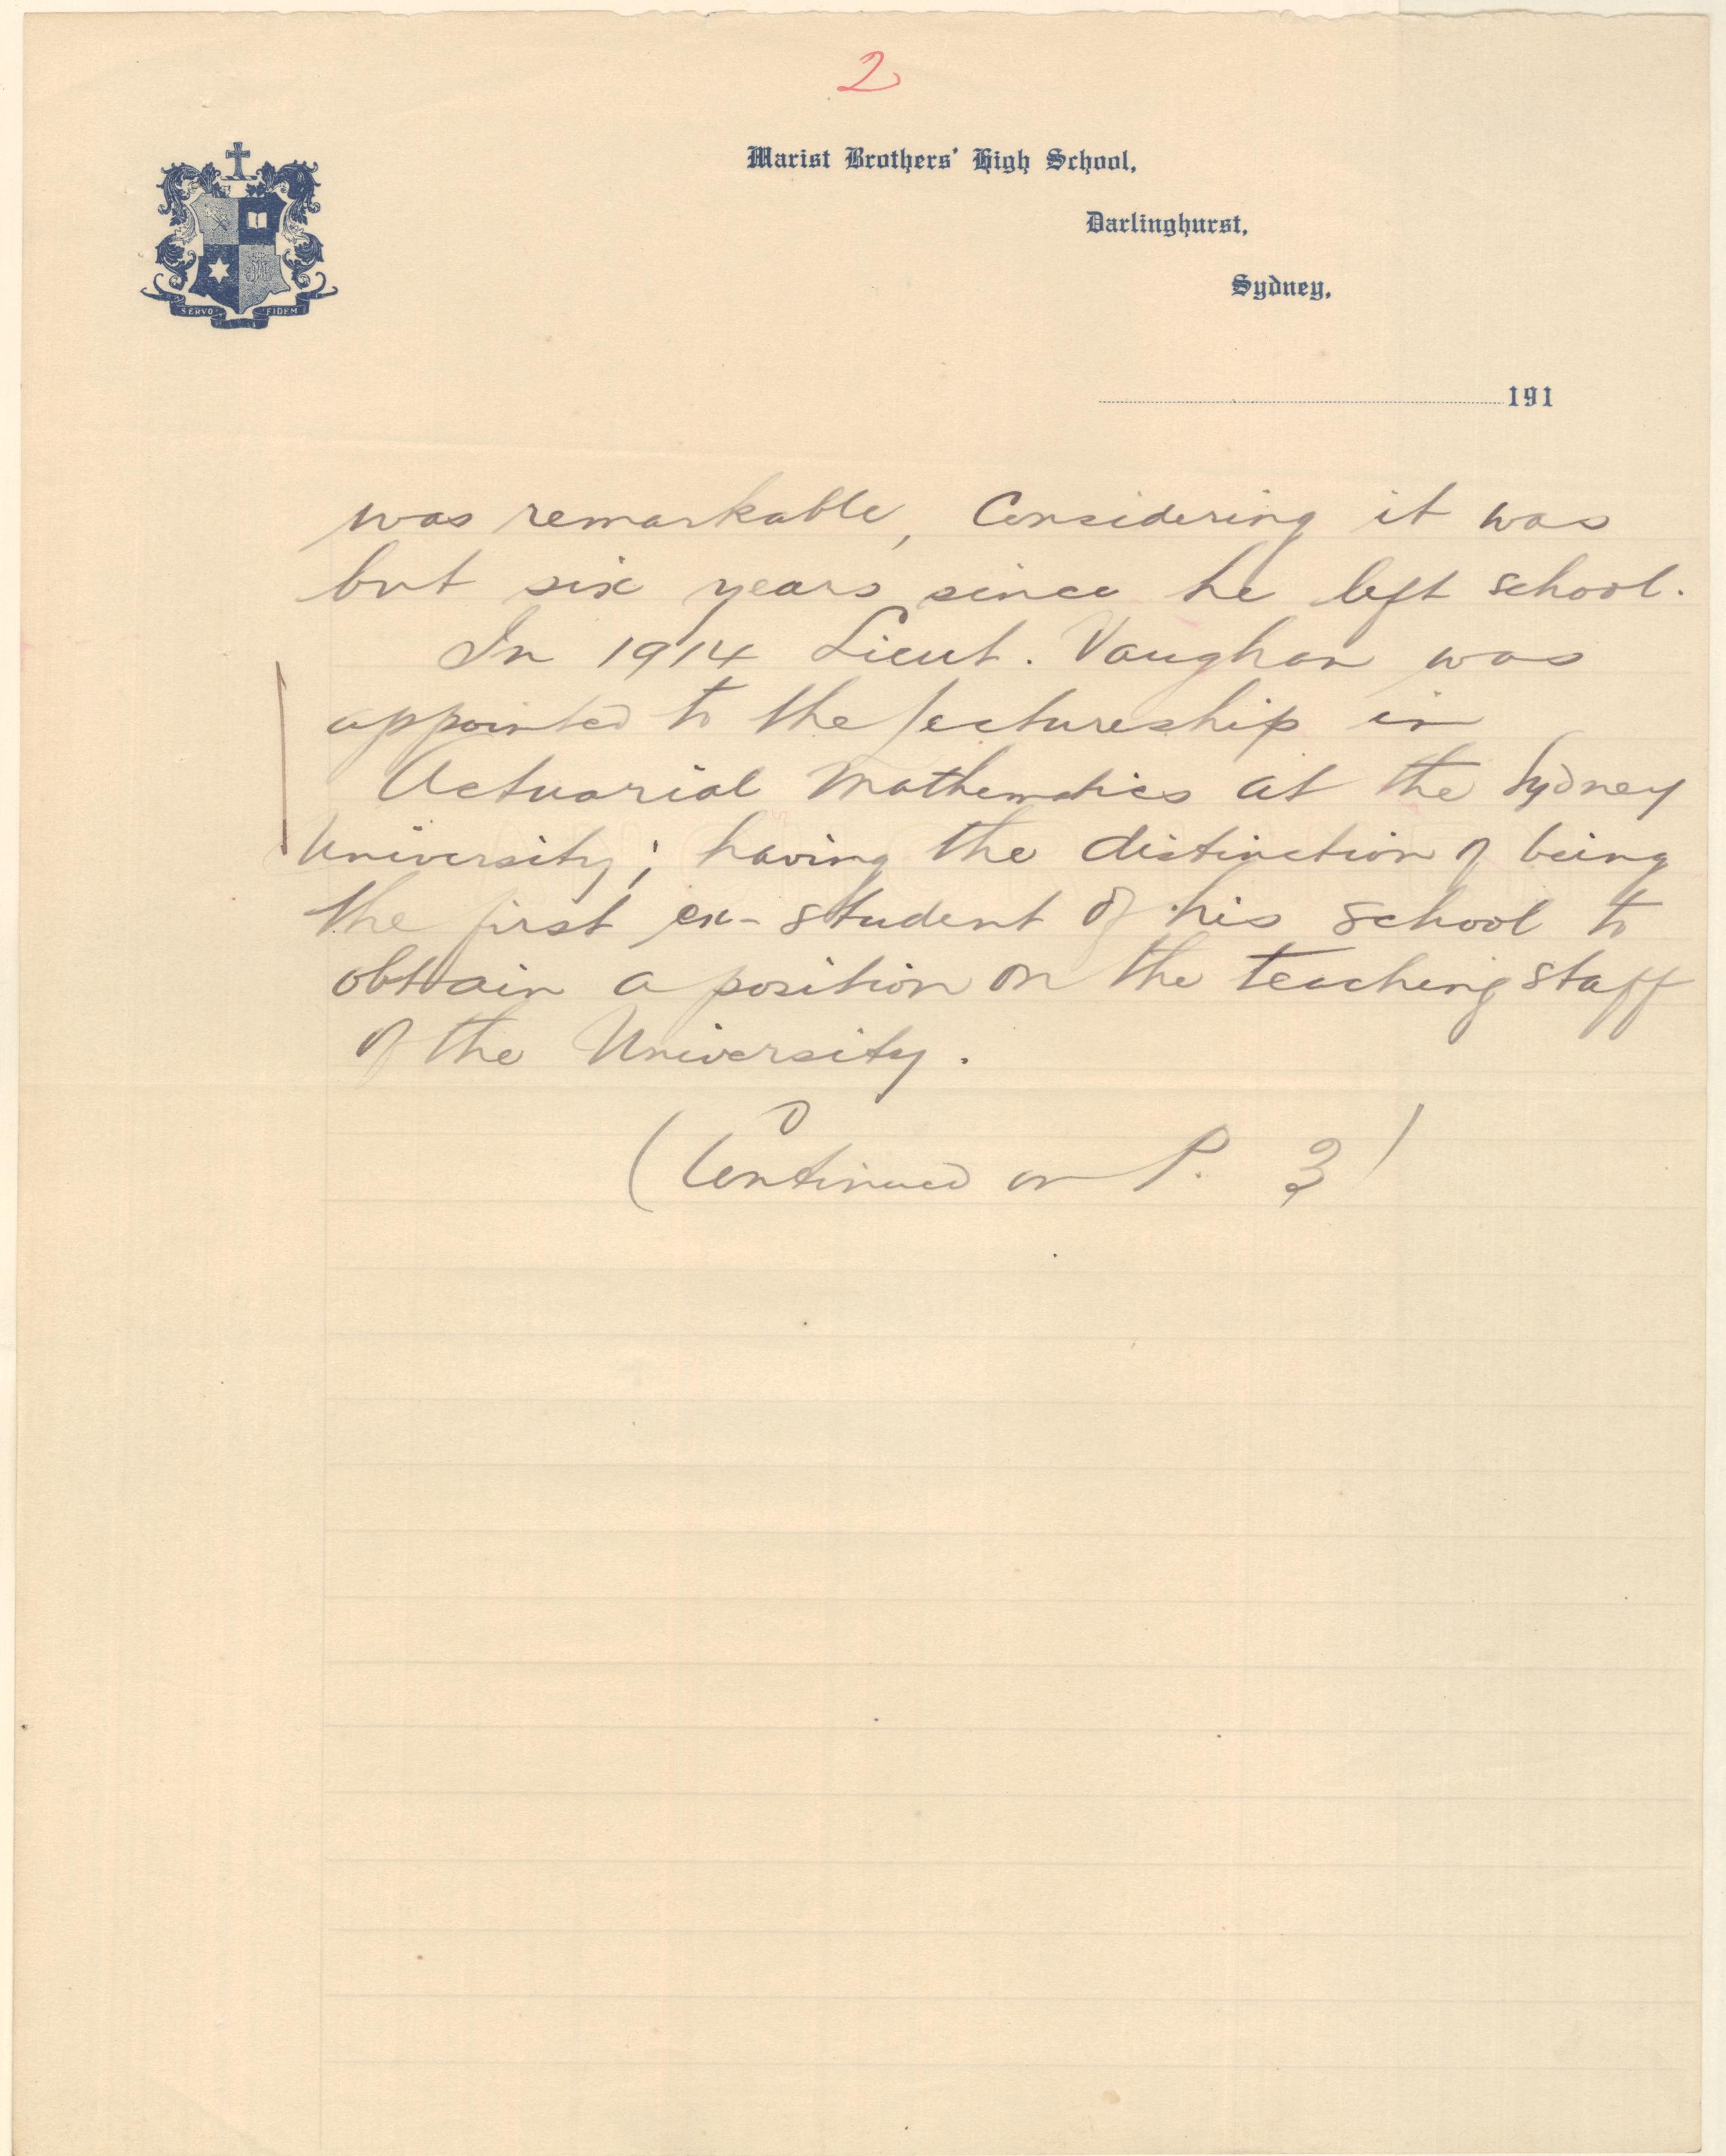 2
Marist Brothers' High School,
Darlinghurst,
Sydney,
SERVO FIDEM
191
was remarkable, Considering it was
but six years since he left school.
In 1914 Lieut. Vaughan was
appointed to the lectureship in
Actuarial Mathematics at the Sydney
University; having the distinction of being
the first ex-student of his school to
obtain a position on the teaching staff
of the University.
(Continued on P. 3)